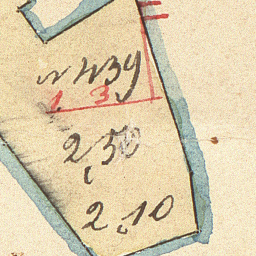 n 439
1. 3.
2,50
2,10